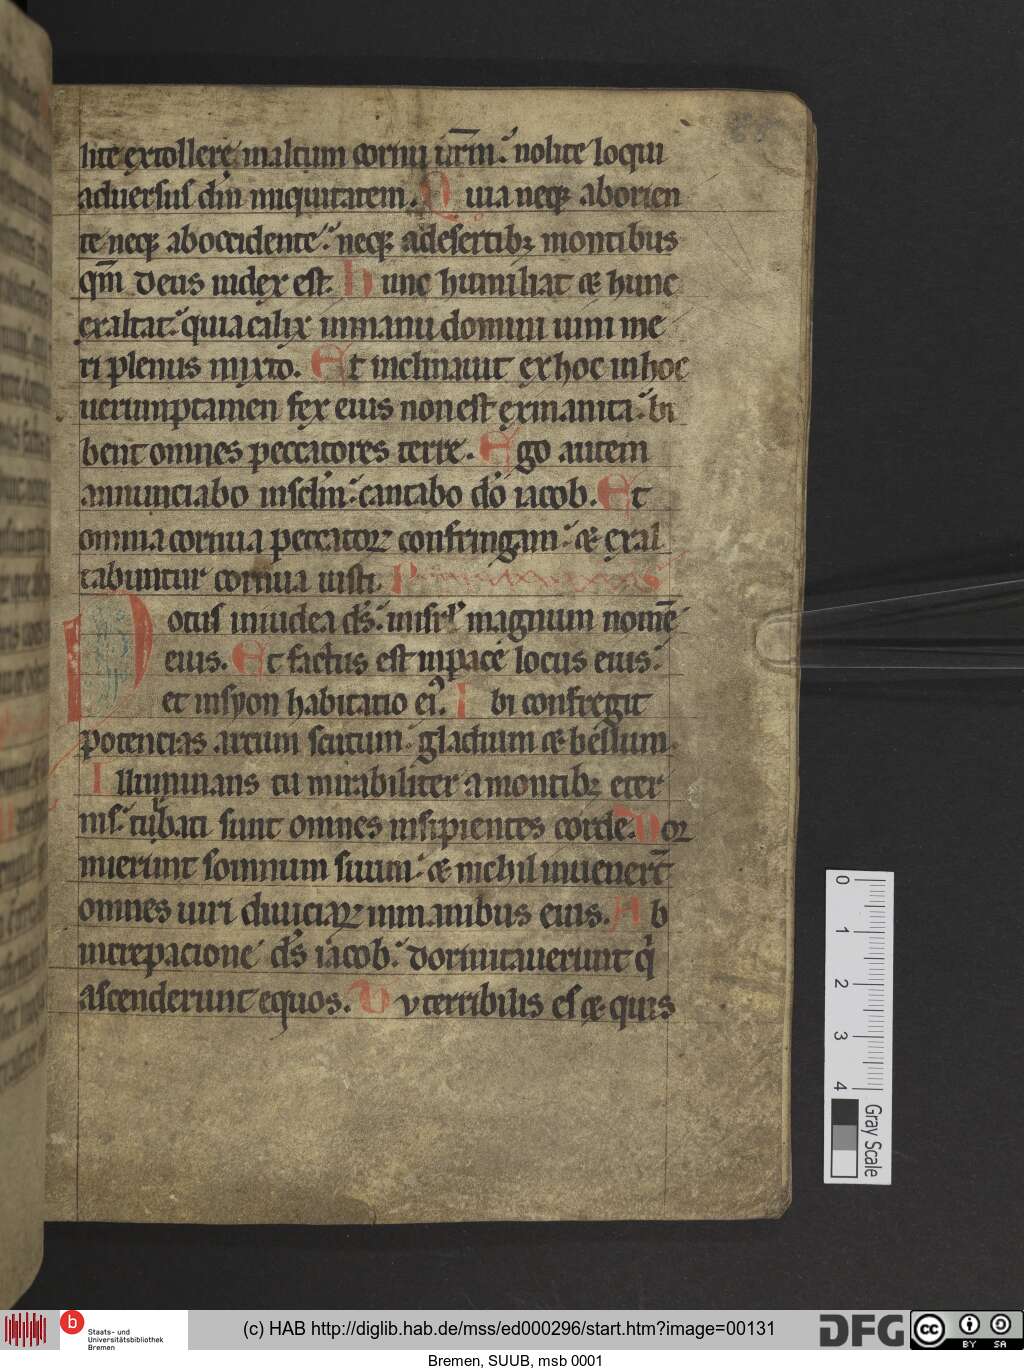 lite extollere in altum cornu ur̄m. nolite loqui
aduersus dm̄ iniquitatem. Quia neq; aborien
te neq; aboccidente. neq; adesertib; montibus
qm̄ deus iudex est. hunc humiliat & hunc
exaltat. quia calix inmanu domini uini me
ri plenus mixto. Et inclinauit ex hoc in hoc
uerumptamen fex eius non est exinanita. bi
bent omnes peccatores terre. Ego autem
annunciabo insclm̄. cantabo do̅ iacob. Et
omnia cornua peccatoꝝ confringam. & exal
tabuntur cornua iusti.
Notus in iudea ds̄. in isrl̄ magnum nom̄e
eius. Et factus est inpace locus eius.
et insyon habitatio eiꝰ. Ibi confregit
potencias arcum scutum. gladium & bellum.
Illuminans tu mirabiliter a montib; eter
nis. tu͛bati sunt omnes insipientes corde. Dor
mierunt somnum suum. & nichil inuenerūt
omnes uiri diuiciaꝝ inmanibus eius. Ab
increpacione ds̄ iacob. dormitauerunt qⁱ
ascenderunt equos. Tu terribilis es & quis
0
1
2
3
4
Gray Scale
b
Staats- und
Universitätsbibliothek
Bremen
(c) HAB http://diglib.hab.de/mss/ed000296/start.htm?image=00131
DFG
cc
BY SA
Bremen, SUUB, msb 0001